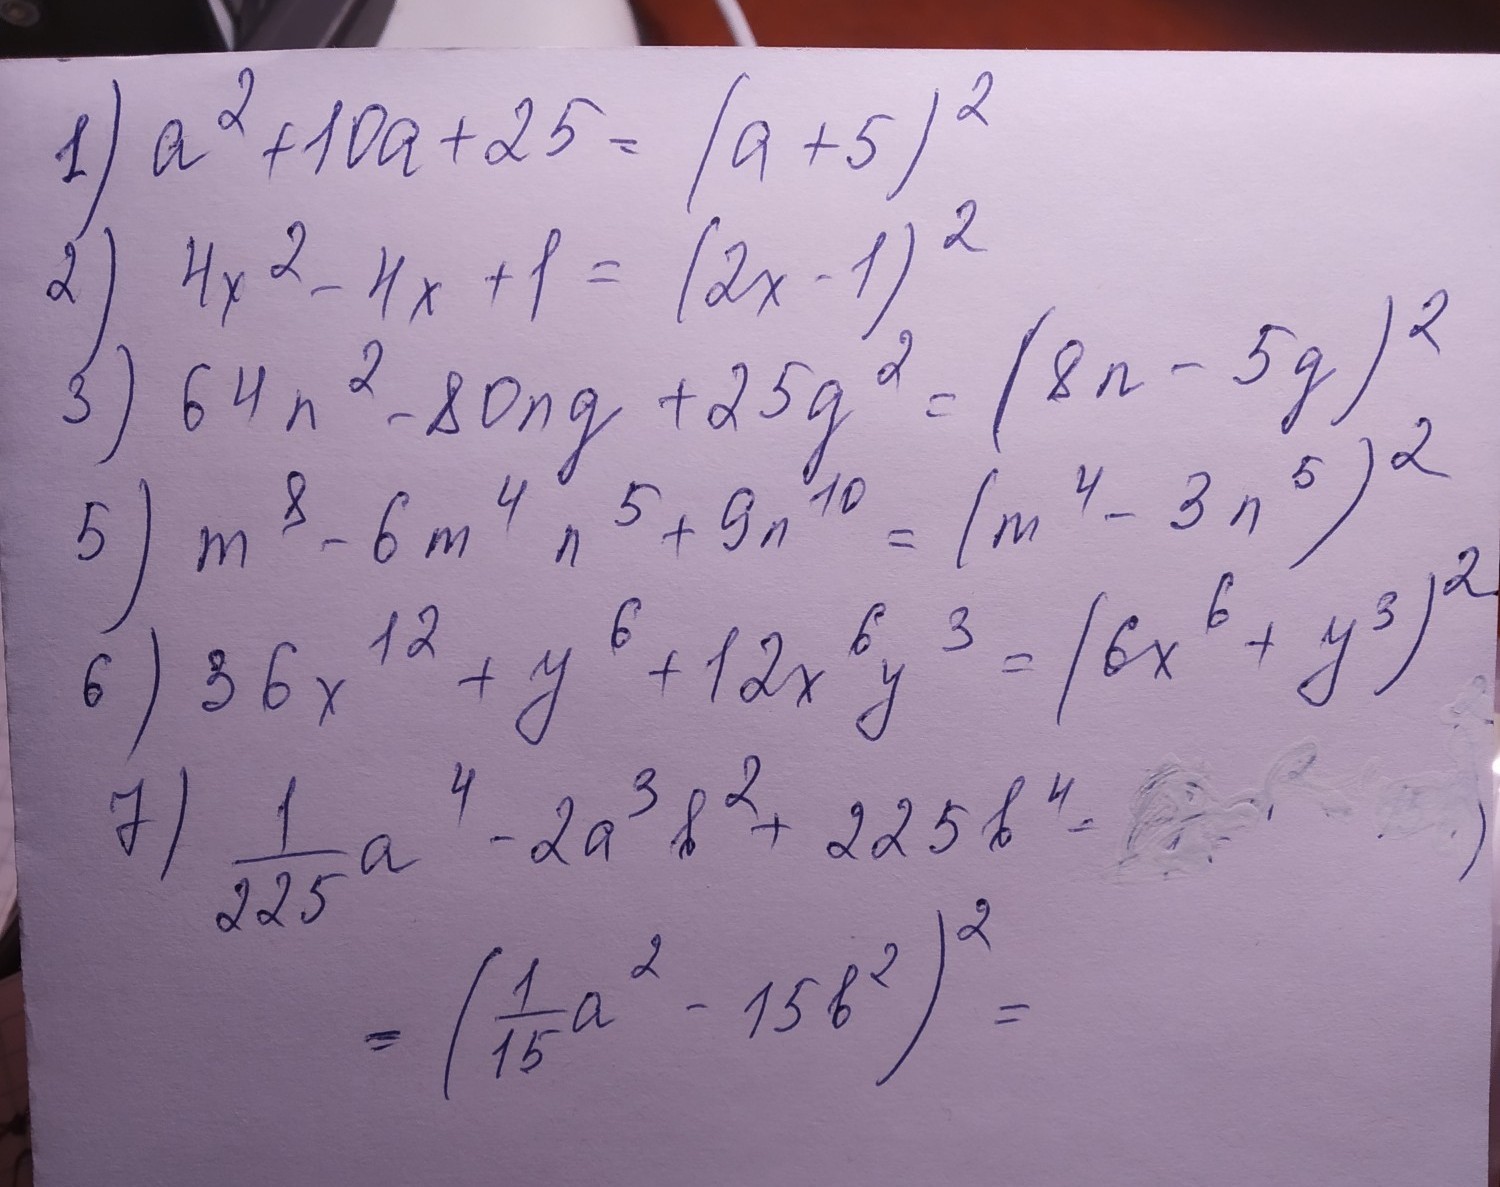 1) a² + 10a + 25 = (a + 5)²
2) 4x² - 4x + 1 = (2x - 1)²
3) 64n² - 80ng + 25g² = (8n - 5g)²
5) m⁸ - 6m⁴n⁵ + 9n¹⁰ = (m⁴ - 3n⁵)²
6) 36x¹² + y⁶ + 12x⁶y³ = (6x⁶ + y³)²
7) 1/225 a⁴ - 2a³b² + 225b⁴ = )
= (1/15 a² - 15b²)² =